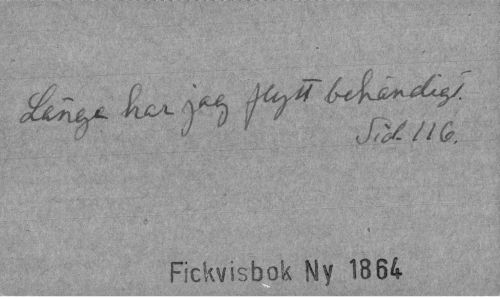 Länge har jag flytt behändigt.
Sid. 116.
Fickvisbok Ny 1864